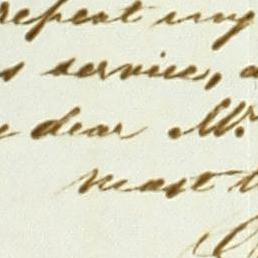 repeat my
service,
dear Mr
most